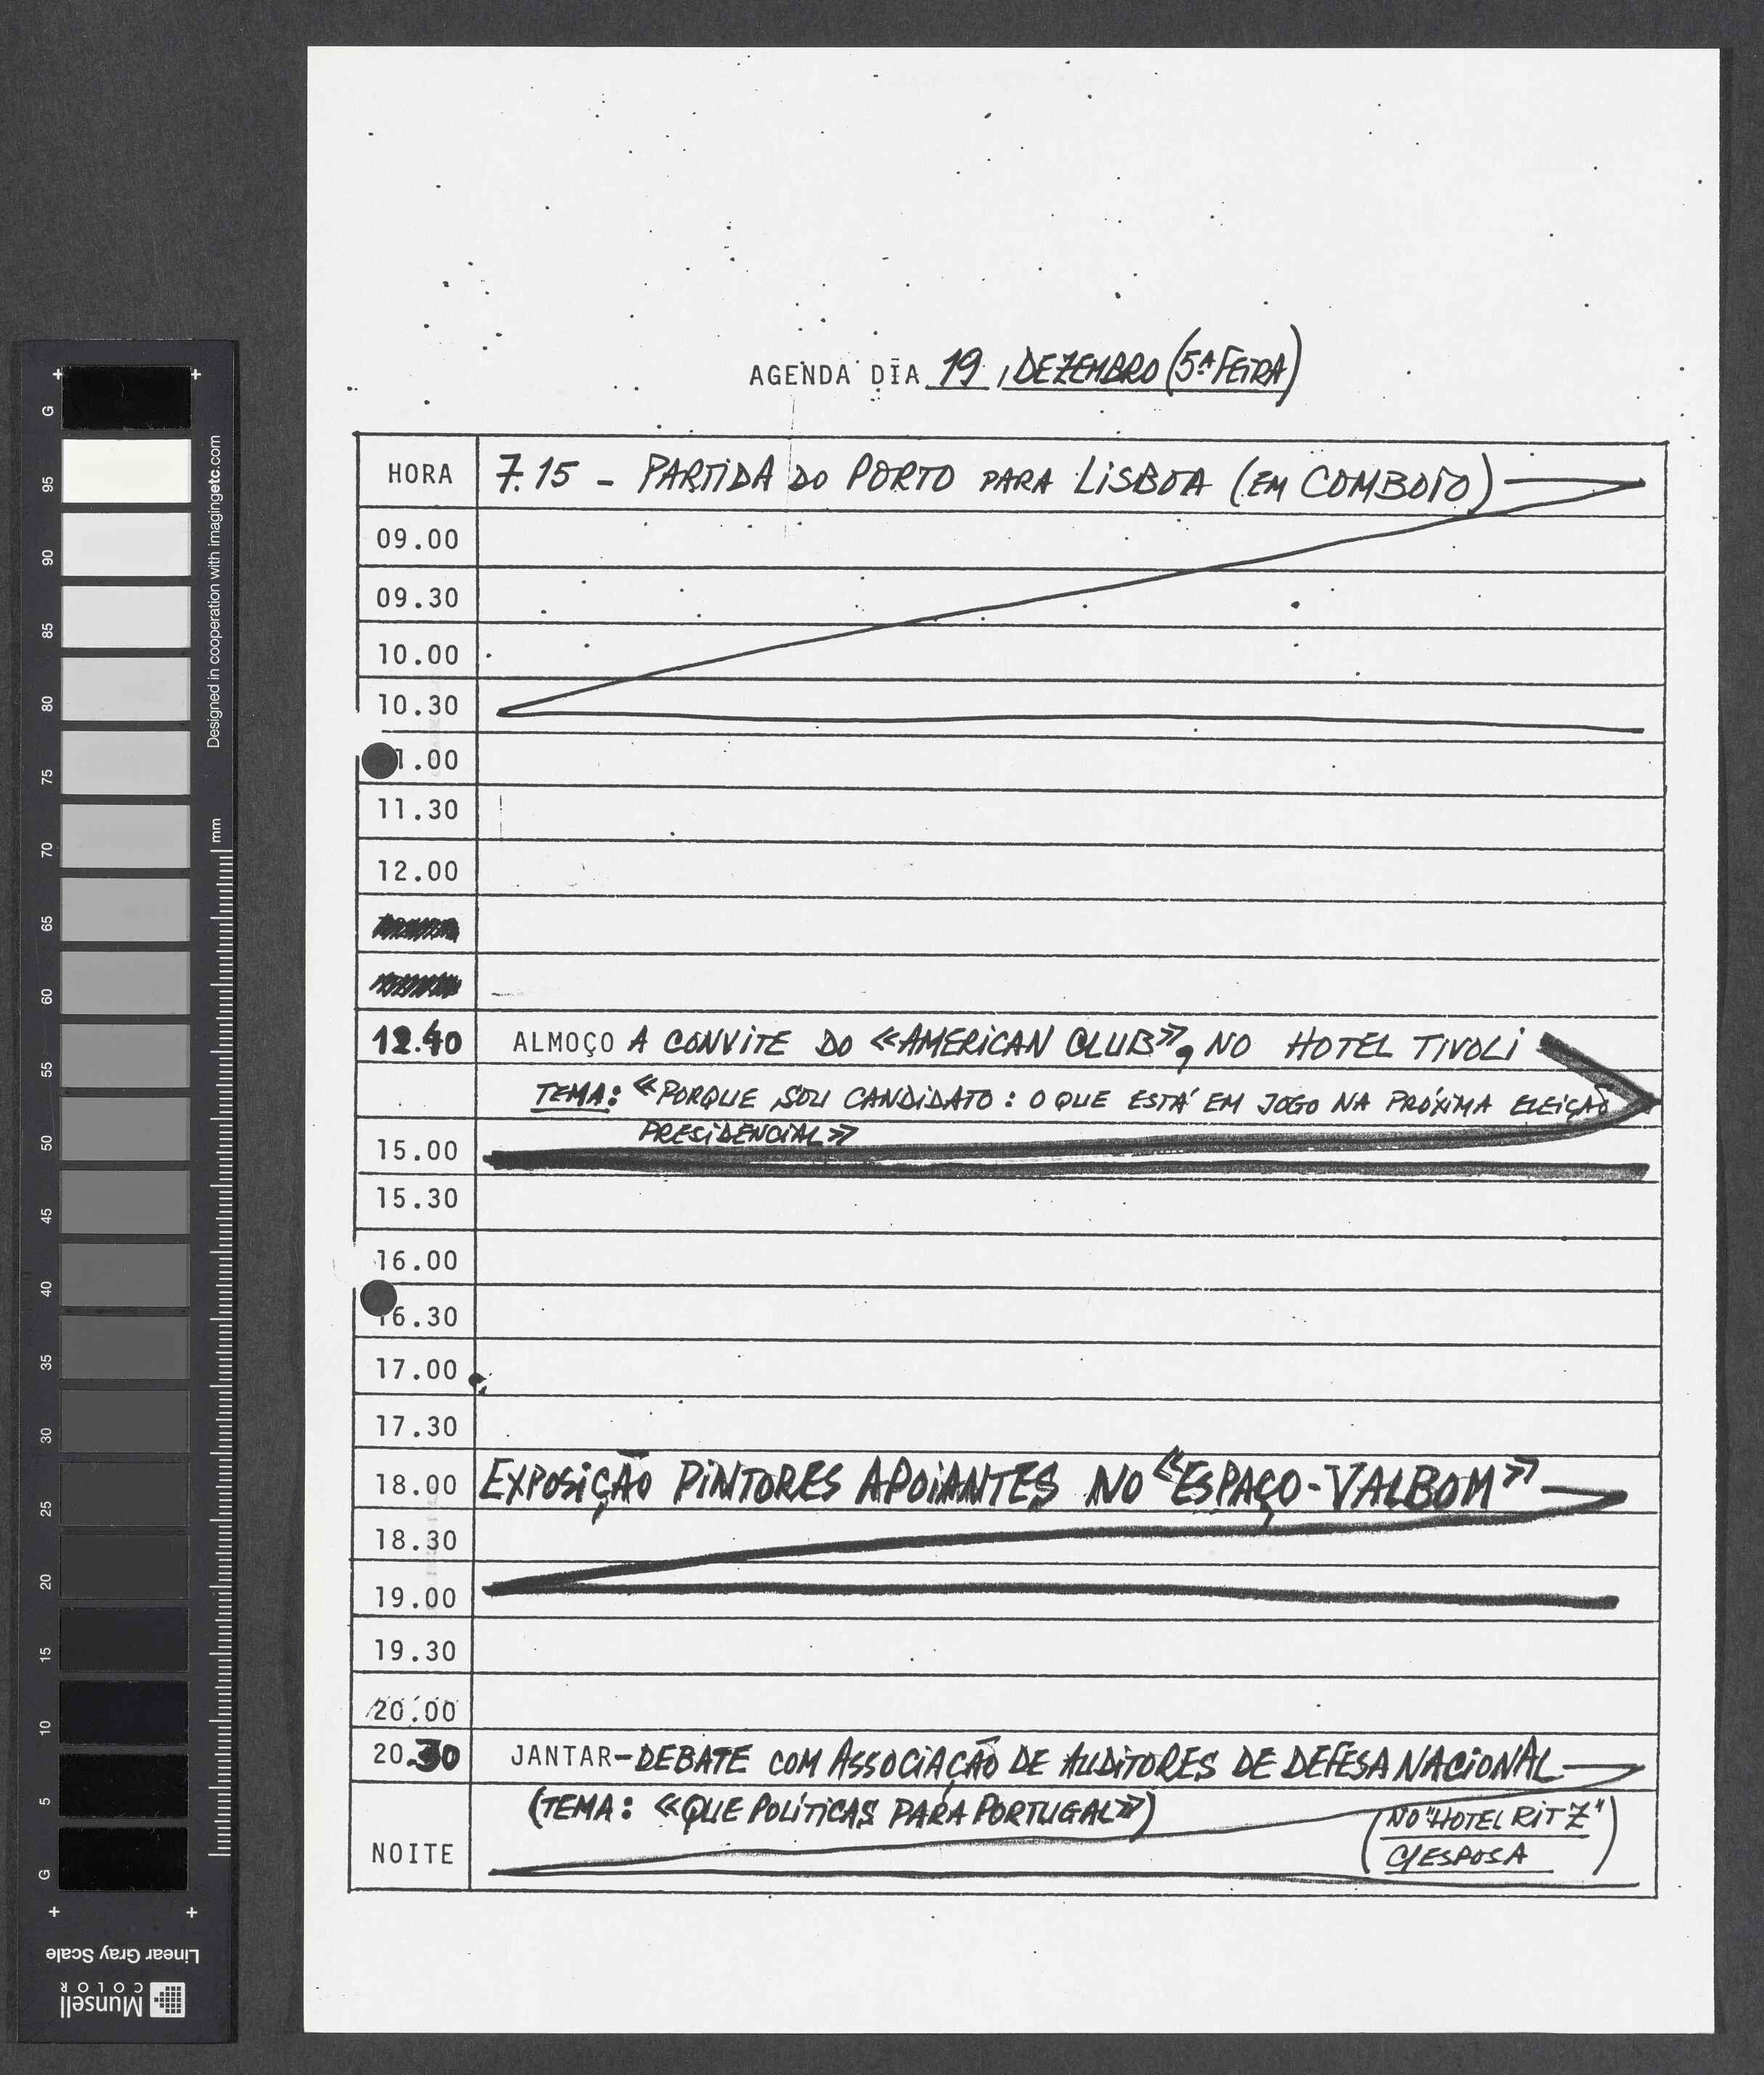 AGENDA DIA 19, DEZEMBRO (5ª FEIRA)
HORA 7.15 - PARTIDA DO PORTO PARA LISBOA (EM COMBOIO)
09.00
09.30
10.00
10.30
1.00
11.30
12.00
12.40 ALMOÇO A CONVITE DO «AMERICAN CLUB», NO HOTEL TIVOLI
TEMA: «PORQUE SOU CANDIDATO: O QUE ESTÁ EM JOGO NA PRÓXIMA ELEIÇÃO
PRESIDENCIAL»
15.00
15.30
16.00
16.30
17.00
17.30
18.00 EXPOSIÇÃO PINTORES APOIANTES NO «ESPAÇO-VALBOM»
18.30
19.00
19.30
20.00
20.30 JANTAR-DEBATE COM ASSOCIAÇÃO DE AUDITORES DE DEFESA NACIONAL
(TEMA: «QUE POLÍTICAS PARA PORTUGAL»)
(NO "HOTEL RITZ"
C/ESPOSA)
NOITE
G
95
90
85
80
75
70
65
60
55
50
45
40
35
30
25
20
15
10
5
G
Designed in cooperation with imagingetc.com
mm
Linear Gray Scale
Munsell
COLOR